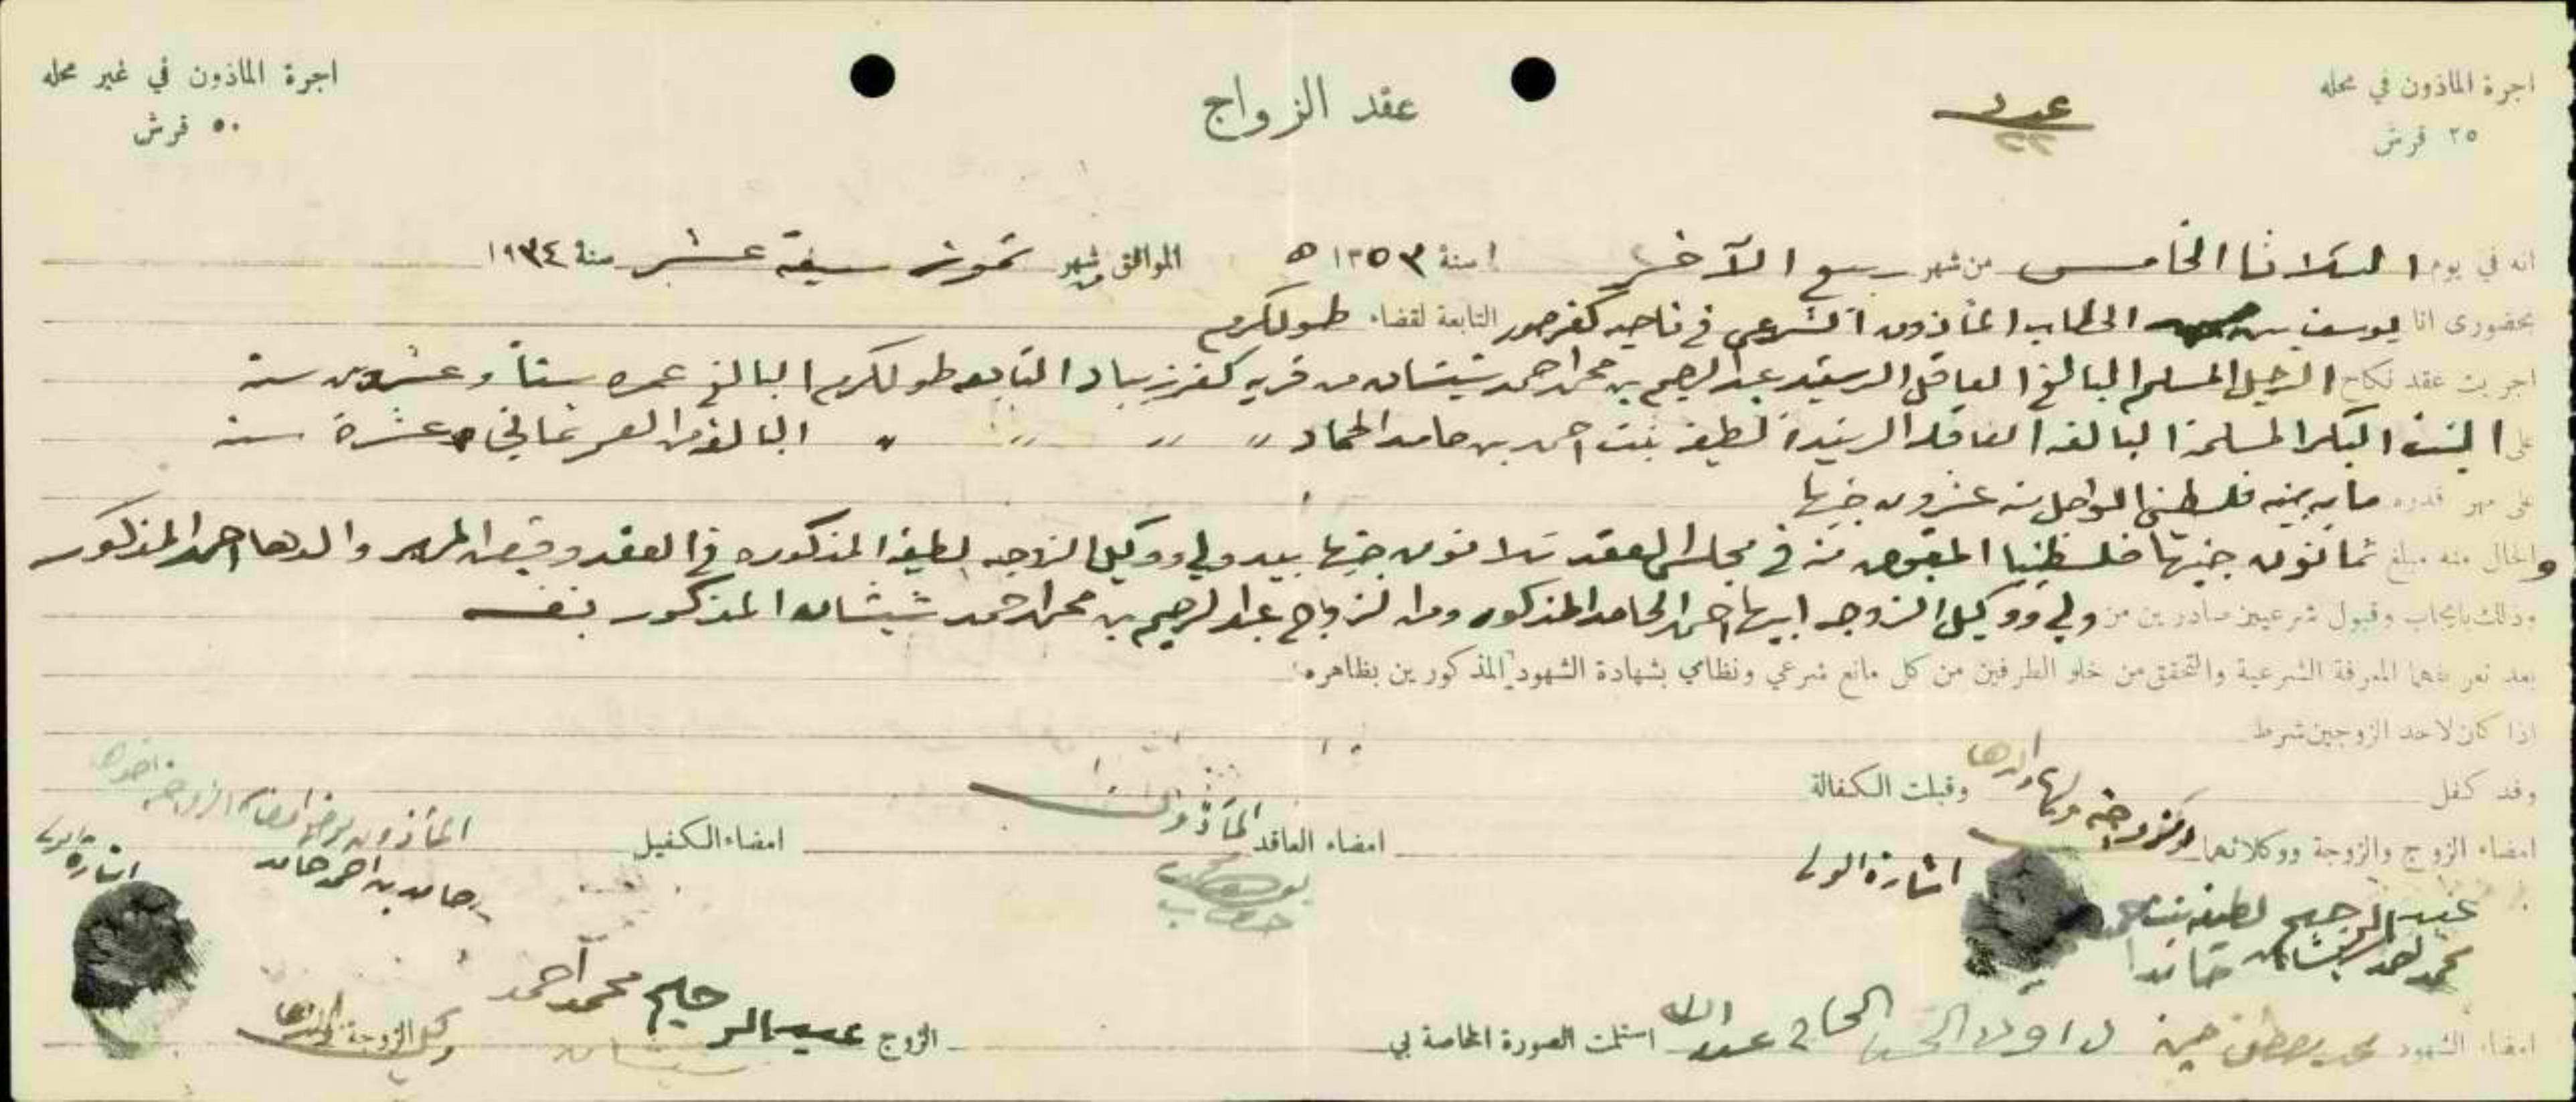 اجرة المأذون في محله
٢٥ قرش
عدد
٢٢
عقد الزواج
اجرة المأذون في غير محله
٥٠ قرش
انه في يوم الثلاثا الخامس من شهر ربيع الآخر سنة ١٣٥٣ ه الموافق من شهر تموز سبعة عشر سنة ١٩٣٤
بحضوري انا يوسف الخطاب المأذون الشرعي في ناحية كفر صور التابعة لقضاء طولكرم
اجريت عقد نكاح الرجل المسلم البالغ العاقل الرشيد عبد الرحيم بن محمد احمد شيشان من قرية كفرزيباد التابعه طولكرم البالغ عمره ستاً وعشرون سنة
على البنت البكر المسلمة البالغه العاقله الرشيدة لطيفه بنت احمد بن حامد الحماد " " " " البالغة من العمر ثماني عشرة سنة
على مهر قدره مايه جنيه فلسطيني المؤجل منه عشرون جنيها
والحال منه مبلغ ثمانون جنيها فلسطينيا المقبوض منه في مجلس العقد ثلاثون جنيها بيد ولي ووكيل الزوجه لطيفه المذكوره في العقد وقبض المهر والدها احمد المذكور
وذلك بايجاب وقبول شرعيين صادرين من ولي ووكيل الزوجه ابيها احمد الحامد المذكور ومن الزوج عبد الرحيم بن محمد احمد شيشان المذكور بنفسه
بعد تعريفهما المعرفة الشرعية والتحقق من خلو الطرفين من كل مانع شرعي ونظامي بشهادة الشهود المذكورين بظاهره
اذا كان لاحد الزوجين شرط
وقد كفل وقبلت الكفالة
امضاء الزوج والزوجة ووكلائهما
اشارة الولي
عبد الرحيم
محمد احمد شيشان
لطيفه بنت
امضاء العاقد المأذون
يوسف
خطاب
امضاء الكفيل
المأذون
حامد بن احمد حامد
اشارة الولي
امضاء الشهود محمد مصطفى حسين
داود
الحاج عبد الله
استلمت الصورة الخاصة بي
الزوج عبد الرحيم محمد احمد
شيشان
وكيل الزوجة والدها